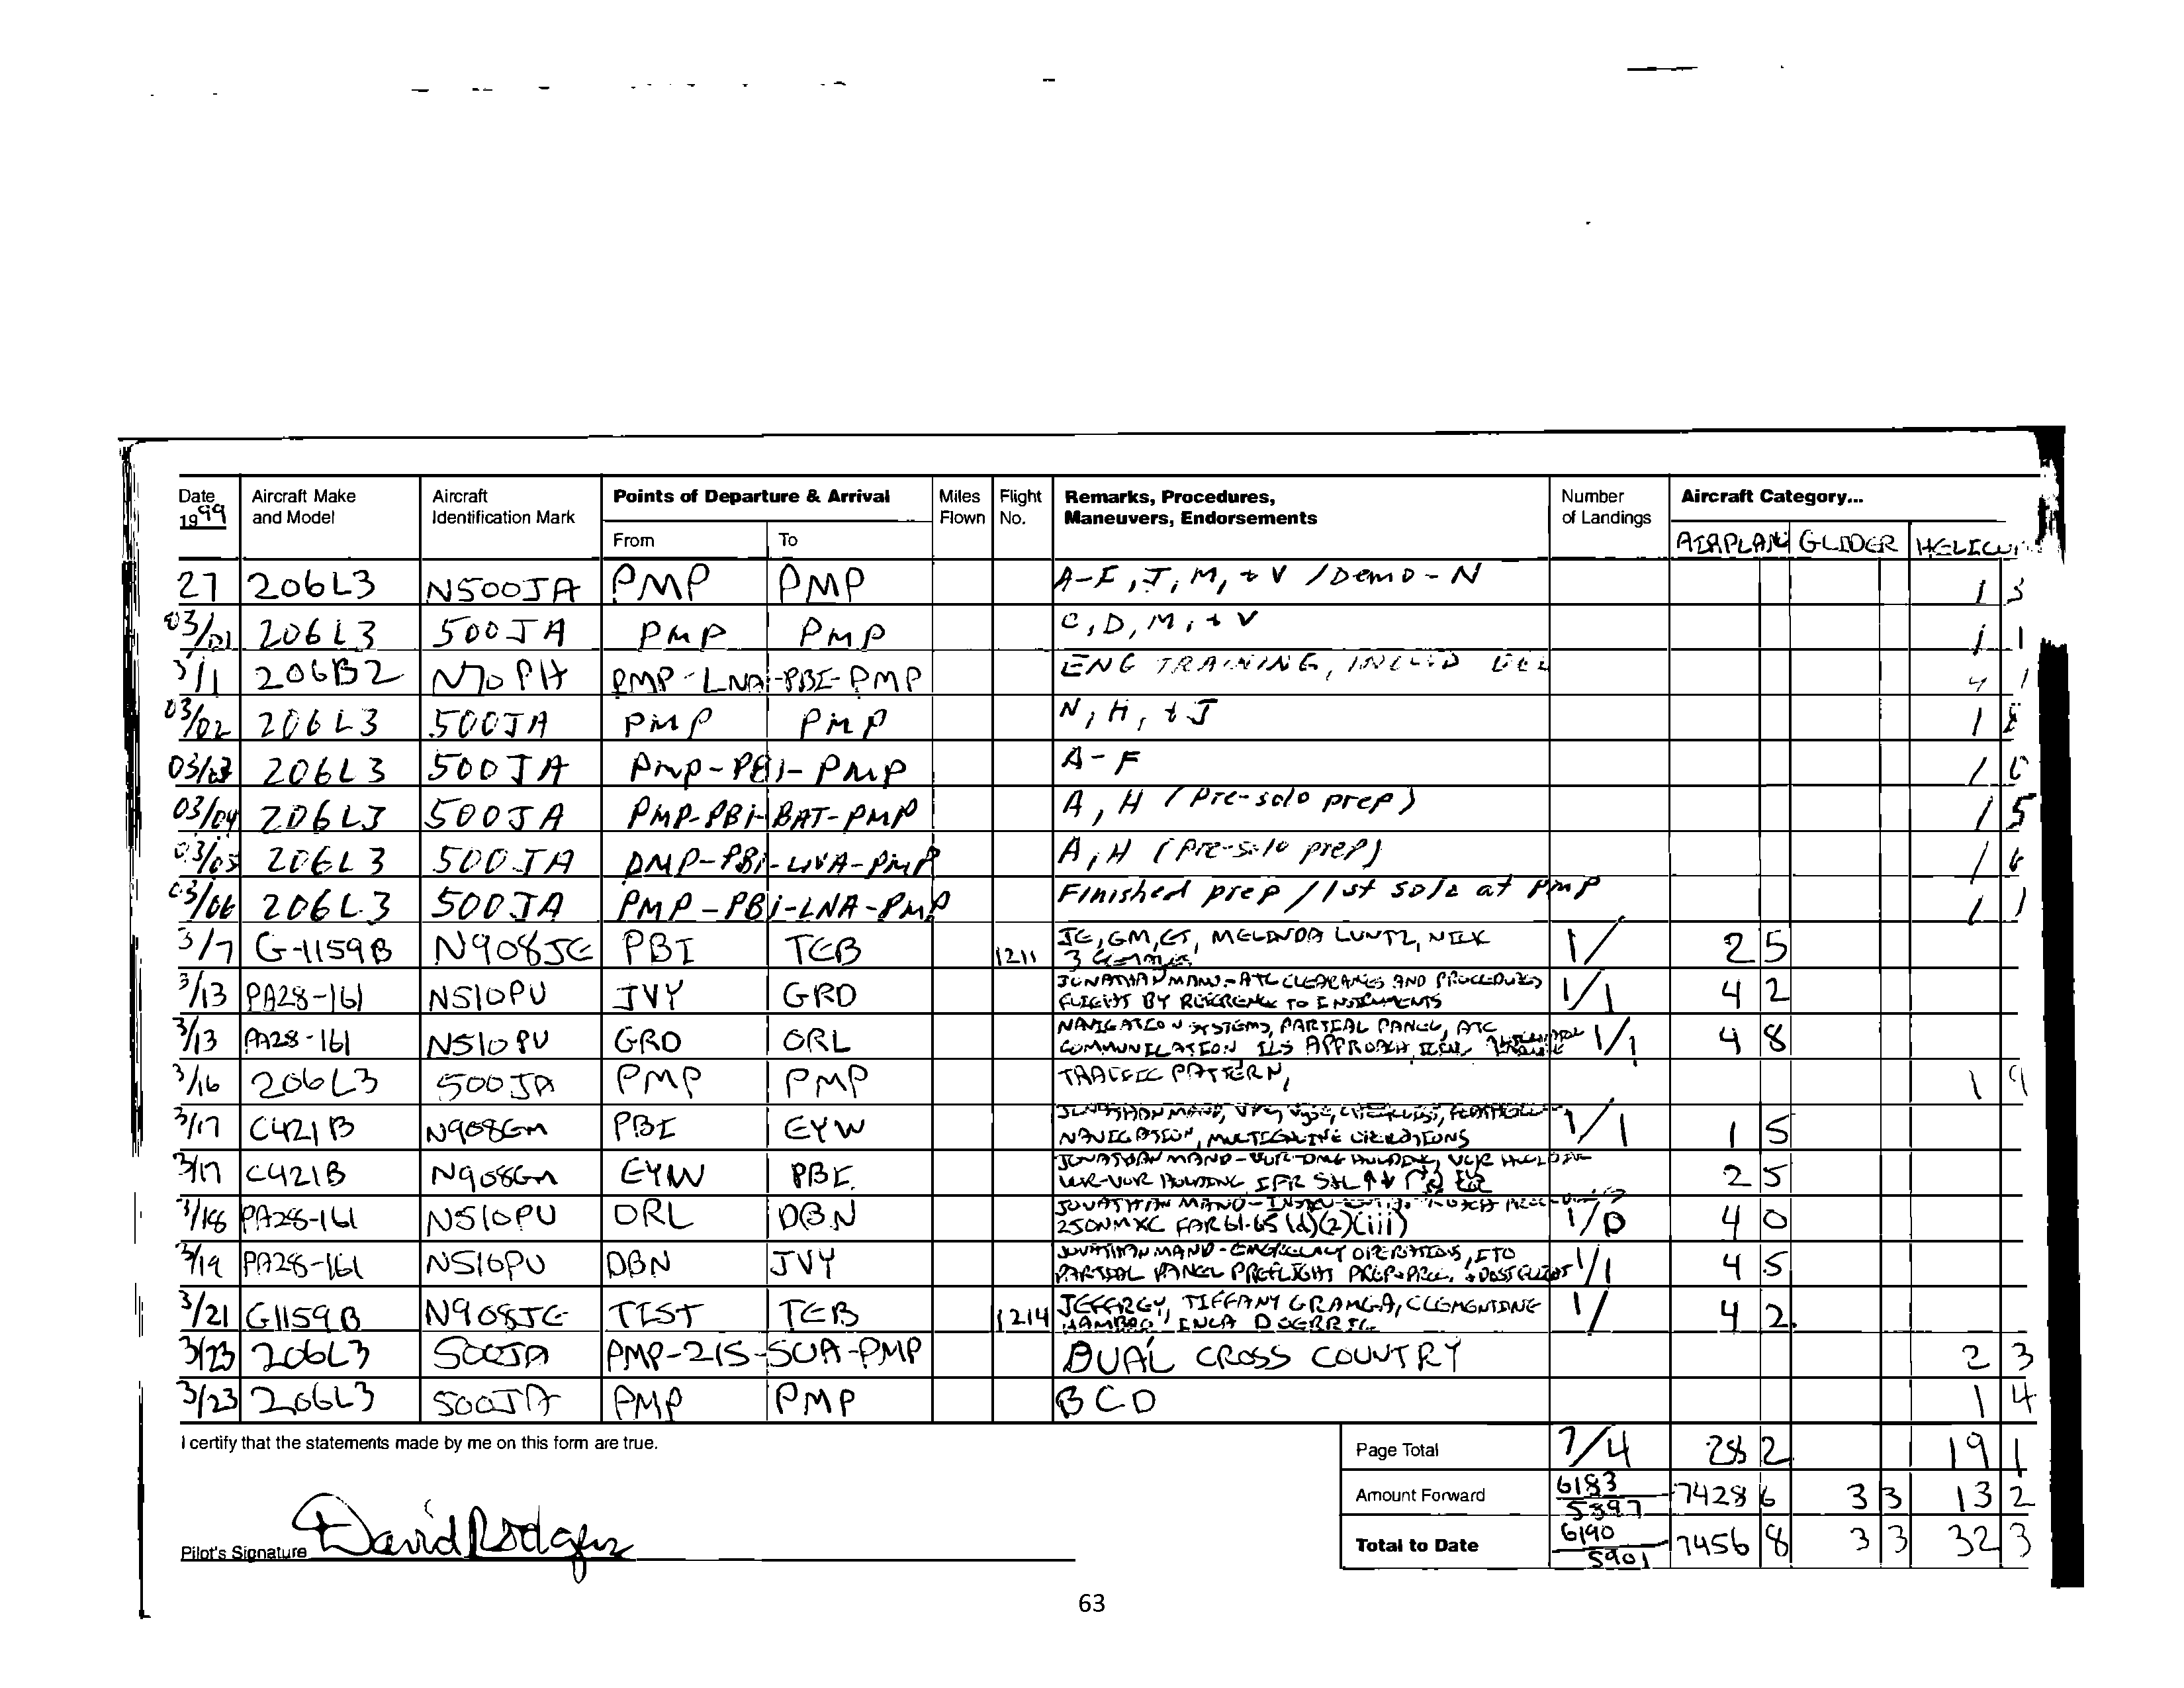 Date Aircraft Make Aircraft Points of Departure & Arrival Miles Flight Remarks, Procedures, Number Aircraft Category...
1999 and Model Identification Mark Flown No. Maneuvers, Endorsements of Landings
From To AIRPLANE GLIDER
27 206L3 N500JA PMP PMP A-F, J, M, + V / Demo - N 1 3
03/01 206L3 500JA PMP PMP C, D, M, + V 1 1
3/1 206B2 N70PH PMP-LNA-PBI-PMP ENG TRAINING, 4 1
03/02 206L3 500JA PMP PMP N, H, + J 1
03/03 206L3 500JA PMP-PBI-PMP A-F 1
03/04 206L3 500JA PMP-PBI-BAT-PMP A, H (Pre-solo prep) 1 5
03/05 206L3 500JA PMP-PBI-LNA-PMP A, H (Pre-solo prep) 1 6
03/06 206L3 500JA PMP-PBI-LNA-PMP Finished prep / 1st solo at PMP 1 1
3/7 G-1159B N908JE PBI TEB 1211 JE, GM, ET, MELINDA LUNTZ, 1/ 2 5
3
3/13 PA28-161 N510PU JVY GRD JONATHAN MANO - ATC CLEARANCES AND PROCEDURES 1/1 4 2
FLIGHT BY REFERENCE TO INSTRUMENTS
3/13 PA28-161 N510PU GRD ORL NAVIGATION SYSTEMS, PARTIAL PANEL, ATC 1/1 4 8
COMMUNICATION ILS APPROACH
3/16 206L3 500JA PMP PMP TRAFFIC PATTERN, 1 9
3/17 C421B N908GM PBI EYW JONATHAN MANO, 1/1 1 5
NAVIGATION, MULTIENGINE OPERATIONS
3/17 C421B N908GM EYW PBI JONATHAN MANO - VOR-DME HOLDING, VOR HOLDING 2 5
VOR-VOR HOLDING IFR
3/18 PA28-161 N510PU ORL DBN JONATHAN MANO - 1/0 4 0
250NM XC FAR 61.65 (d)(2)(iii)
3/19 PA28-161 N510PU DBN JVY JONATHAN MANO - EMERGENCY OPERATIONS, 1/1 4 5
PARTIAL PANEL PREFLIGHT
3/21 G1159B N908JE TIST TEB 1214 JEFFREY, TIFFANY GRAMZA, CLEMENTINE 1/ 4 2
3/23 206L3 500JA PMP-2IS-SUA-PMP DUAL CROSS COUNTRY 2 3
3/23 206L3 500JA PMP PMP BCD 1 4
I certify that the statements made by me on this form are true. Page Total 7/4 28 2 19 1
Amount Forward 6183 5897 7428 6 3 3 13 2
Pilot's Signature David Rodgers Total to Date 6190 5901 7456 8 3 3 32 3
63